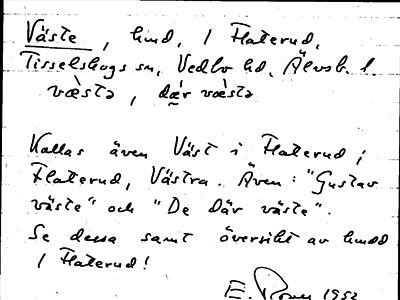 Väste, hmd, i Flaterud,
Tisselskogs sn, Vedbo hd, Älvsb. l.
væ̀stə, dæ̀r væ̀stə
Kallas även Väst i Flaterud i
Flaterud, Västra. Även: "Gustav
väste" och "De där väste".
Se dessa samt översikt av hmdd
i Flaterud!
E. 1952